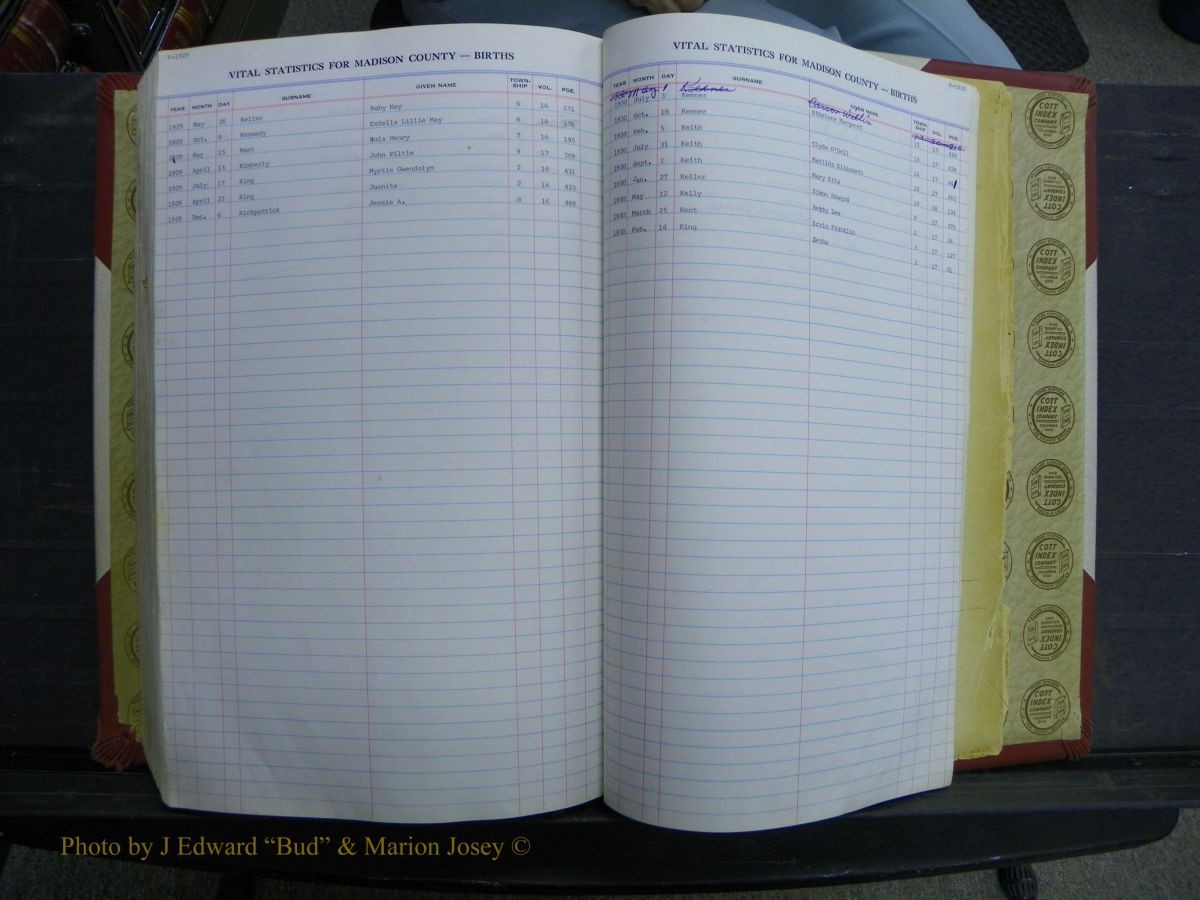 K-1929
VITAL STATISTICS FOR MADISON COUNTY — BIRTHS
YEAR MONTH DAY SURNAME GIVEN NAME TOWN-SHIP VOL. PGE.
1929 May 28 Keller Ruby May 9 16 171
1929 Oct. 8 Kennedy Estella Lillie May 9 16 176
1929 May 15 Kent Rula Henry 7 16 195
1929 April 13 Kimberly John Piltim 9 17 309
1929 July 17 King Myrtle Gwendolyn 2 16 431
1929 April 22 King Juanita 2 16 423
1929 Dec. 6 Kirkpatrick Jessie A. 8 16 409
K-1930
VITAL STATISTICS FOR MADISON COUNTY — BIRTHS
YEAR MONTH DAY SURNAME GIVEN NAME TOWN-SHIP VOL. PGE.
May 1 Keener Carson Willis
1930 July 3 Keener Ethelene Margaret 13 17
1930 Oct. 18 Keener Clyde O'Dell 13 17
1930 Feb. 5 Keith Matilda Elizabeth 16 17
1930 July 31 Keith Mary Etta 16 17
1930 Sept. 2 Keith Simon Howard 16 16
1930 Jan. 27 Keller Betty Lee 9 17 275
1930 May 12 Kelly Ervin Franklin 1 17
1930 March 25 Kent Zetha 17
1930 Feb. 14 King 2 17
COTT INDEX COMPANY COLUMBUS OHIO
Photo by J Edward “Bud” & Marion Josey ©